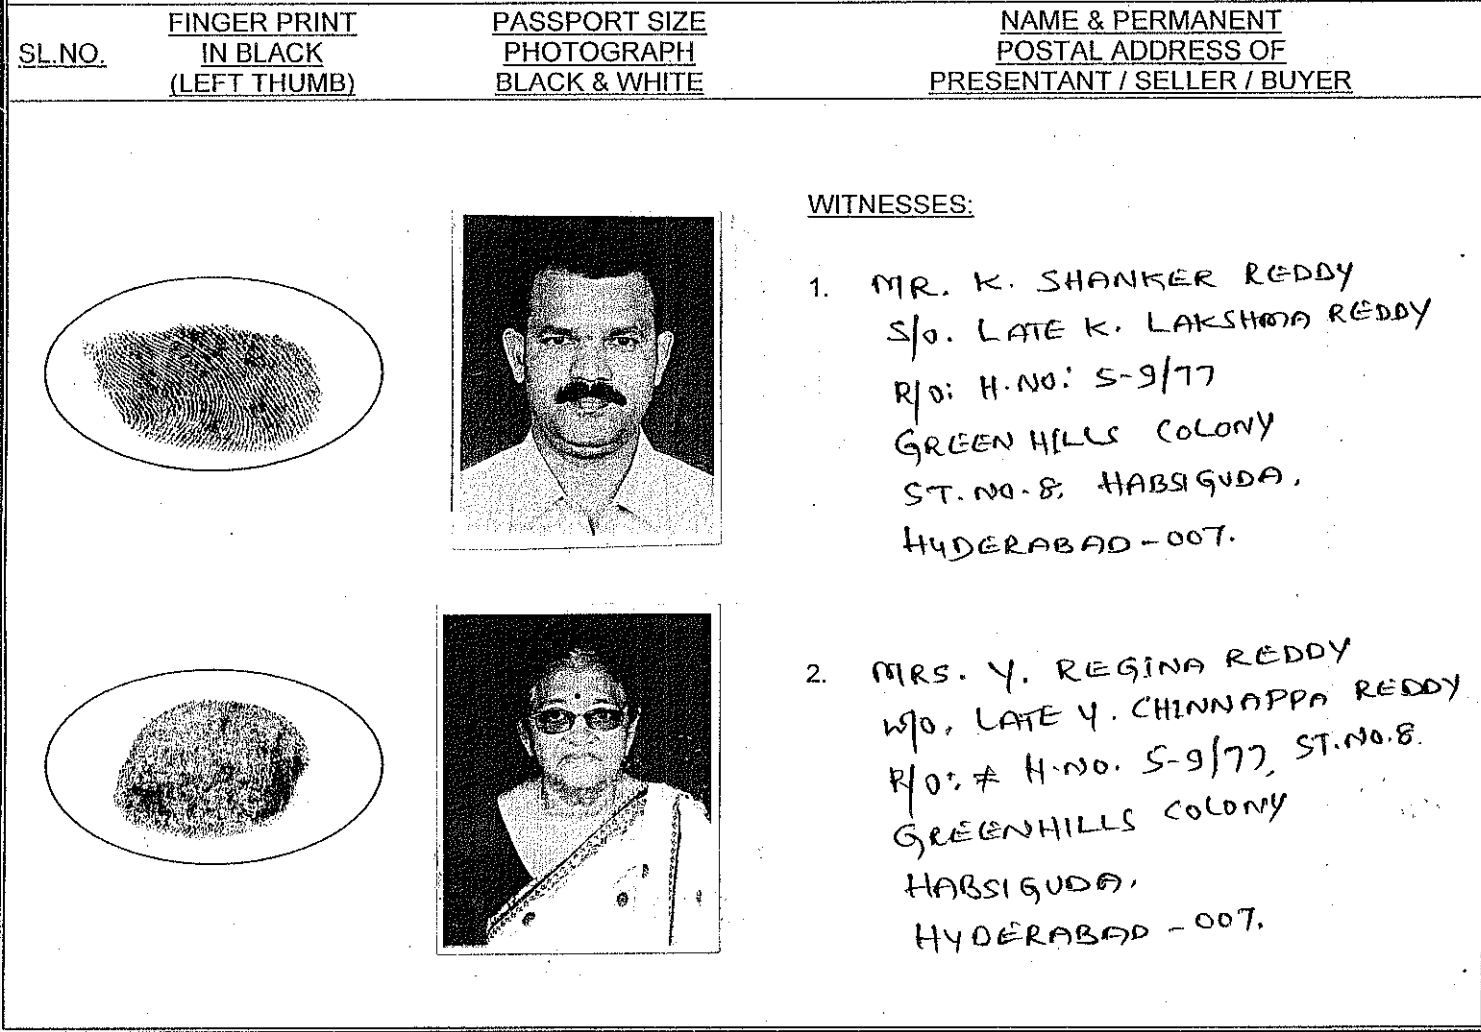 SL.NO.
FINGER PRINT
IN BLACK
(LEFT THUMB)
PASSPORT SIZE
PHOTOGRAPH
BLACK & WHITE
NAME & PERMANENT
POSTAL ADDRESS OF
PRESENTANT / SELLER / BUYER
WITNESSES:
1. MR. K. SHANKER REDDY
S/o. LATE K. LAKSHMA REDDY
R/o: H.NO: 5-9/77
GREEN HILLS COLONY
ST.NO.8, HABSIGUDA,
HYDERABAD-007.
2. MRS. Y. REGINA REDDY
W/o. LATE Y. CHINNAPPA REDDY
R/o: # H.NO. 5-9/77, ST.NO.8.
GREENHILLS COLONY
HABSIGUDA,
HYDERABAD-007.